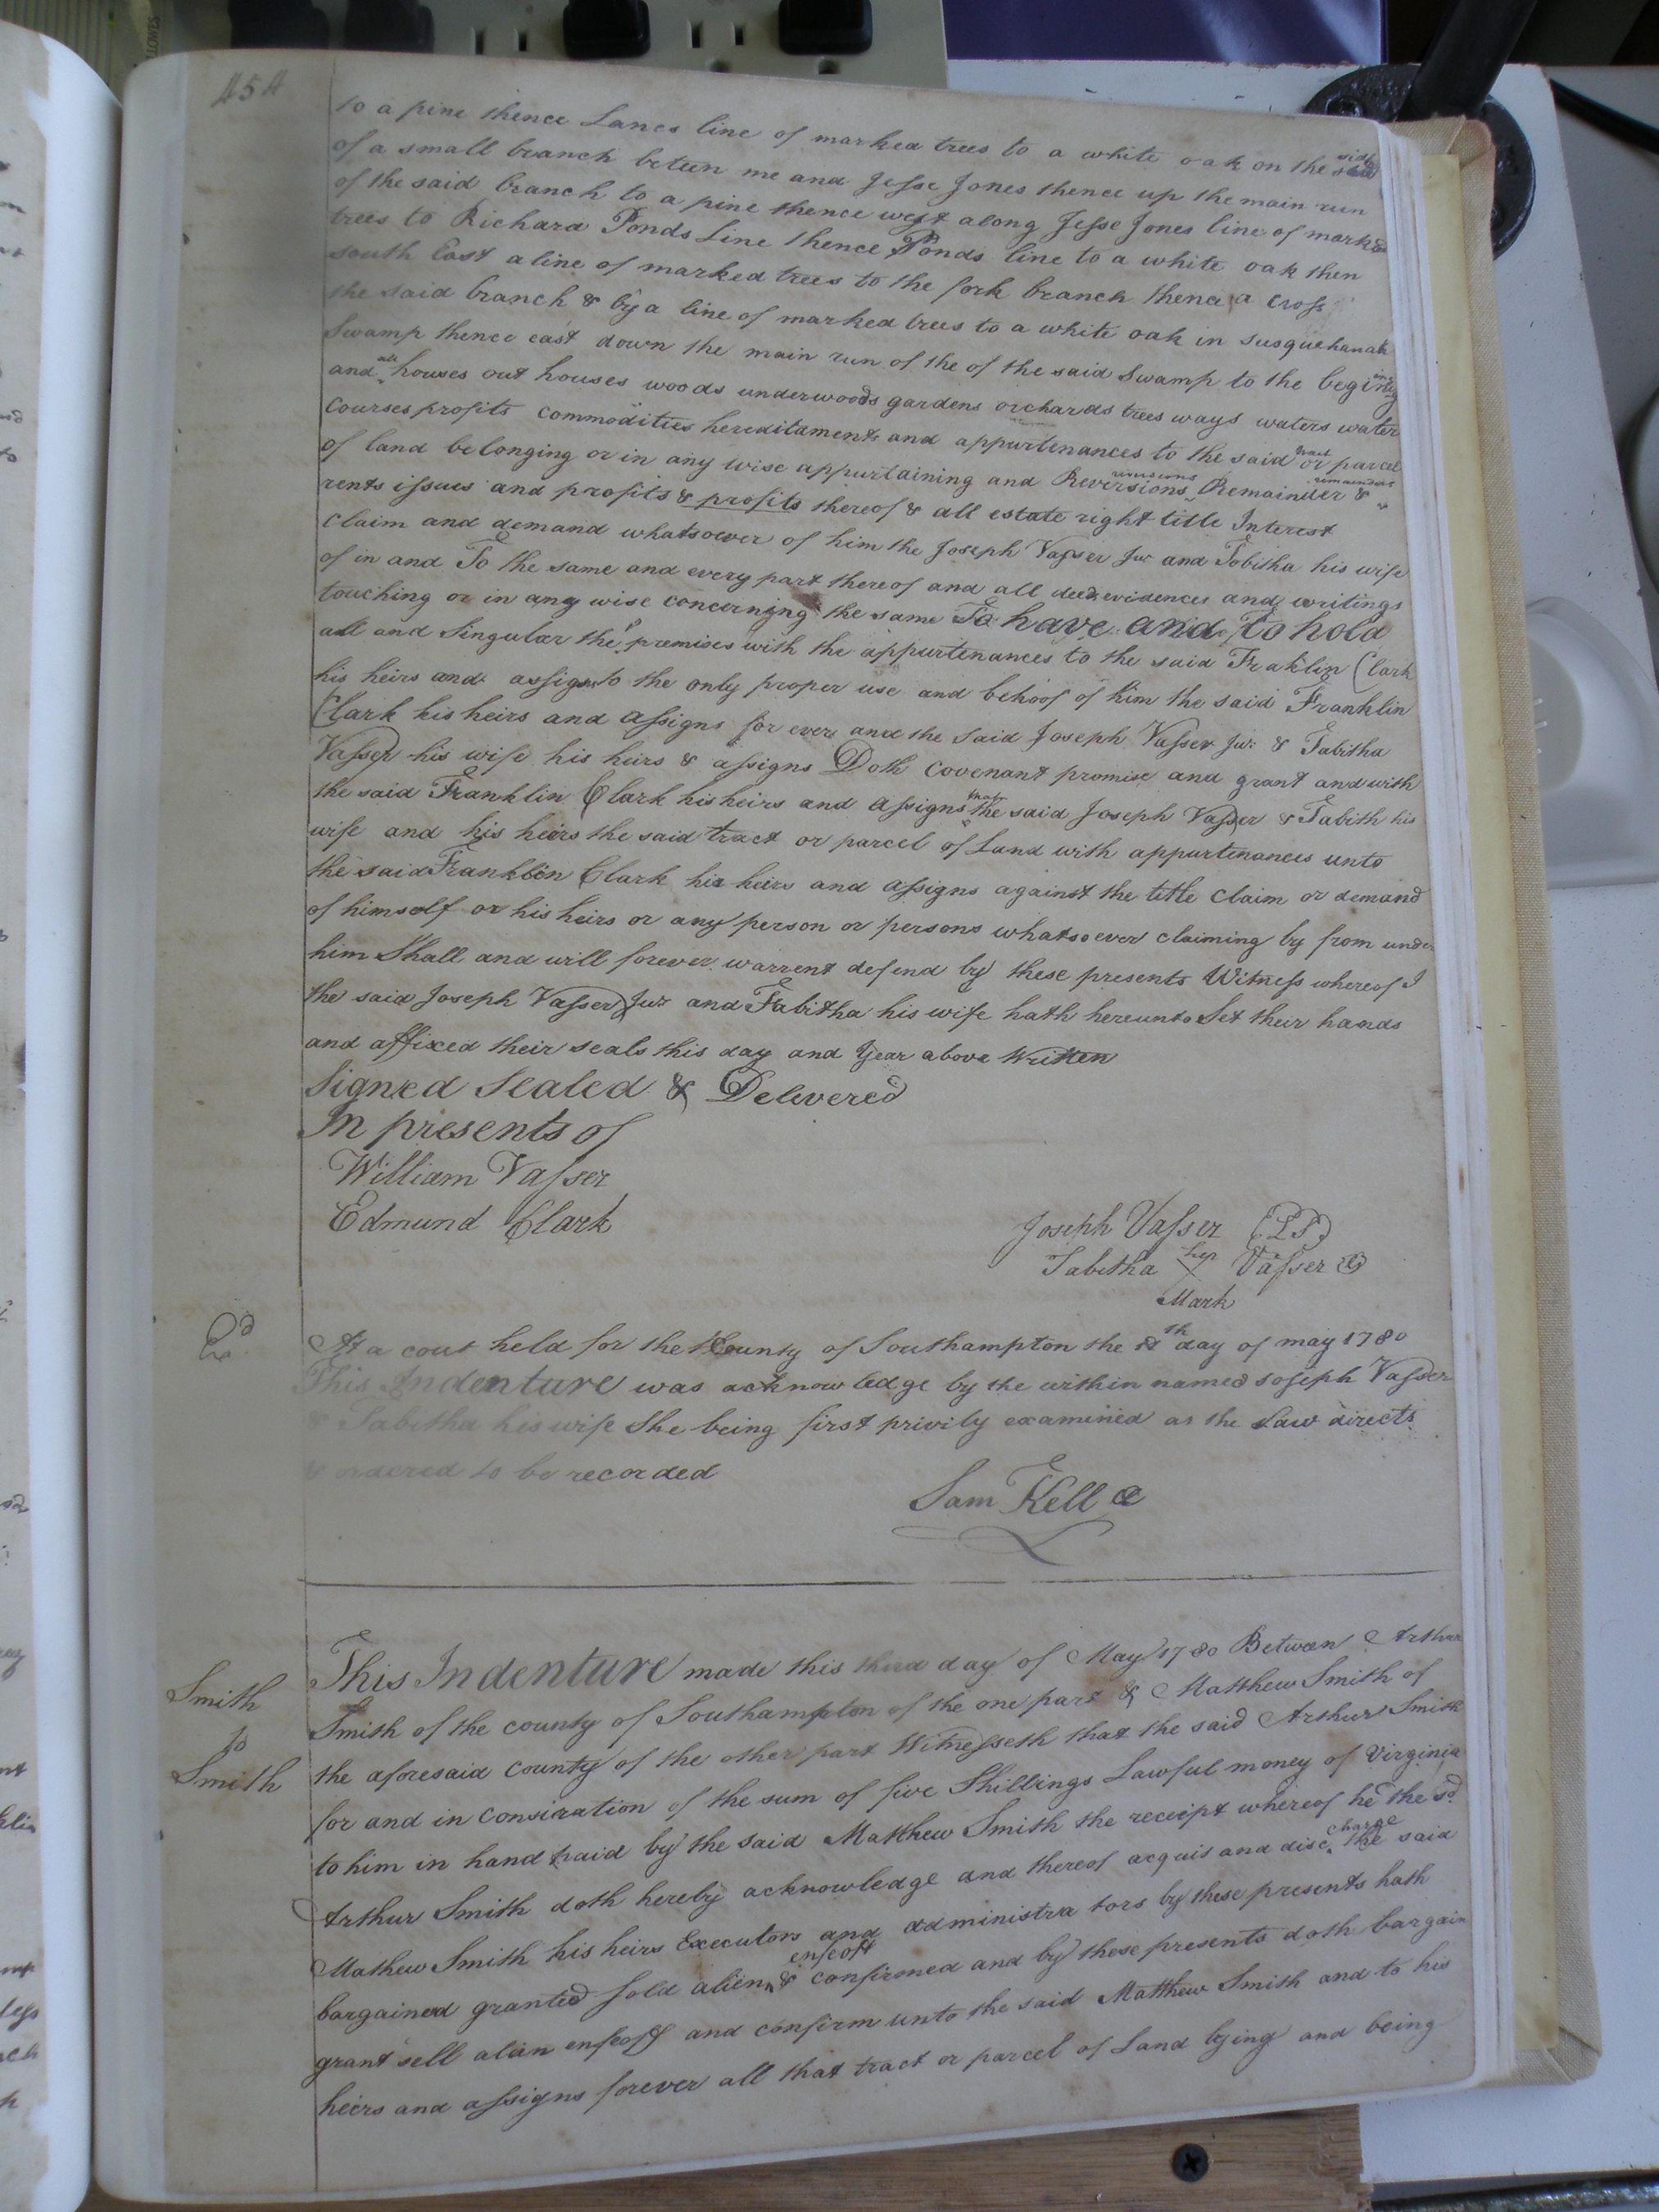 454
to a pine thence Lanes line of marked trees to a white oak on the side
of a small branch beteen me and Jesse Jones thence up the main run
of the said branch to a pine thence west along Jesse Jones line of marked
trees to Richard Ponds Line thence Ponds line to a white oak then
south East a line of marked trees to the fork branch thence a cross
the said branch & by a line of marked trees to a white oak in susquehanah
Swamp thence east down the main run of the of the said Swamp to the begining
and all houses out houses woods underwoods gardens orchards trees ways waters water
Courses profits commodities hereditaments and appurtenances to the said tract or parcel
of land belonging or in any wise appurtaining and Reversions revisions Remainder & remainders
rents issues and profits & profits thereof & all estate right title Interest
Claim and demand whatsoever of him the Joseph Vasser Jur and Tobitha his wife
of in and To the same and every part thereof and all deeds evidences and writings
touching or in any wise concerning the same To have and To hold
all and Singular the premises with the appurtenances to the said Fraklin Clark
his heirs and assigns to the only proper use and behoof of him the said Franklin
Clark his heirs and assigns for ever and the said Joseph Vasser Jur & Tabitha
Vasser his wife his heirs & assigns Doth covenant promise and grant and with
the said Franklin Clark his heirs and assigns that the said Joseph Vasser & Tabith his
wife and his heirs the said tract or parcel of Land with appurtenances unto
the said Franklin Clark his heirs and assigns against the title Claim or demand
of himself or his heirs or any person or persons whatsoever claiming by from under
him Shall and will forever warrent defend by these presents Witness whereof I
the said Joseph Vasser Jur and Tabitha his wife hath hereunto Set their hands
and affixed their seals this day and Year above Written
Signed Sealed & Delevered
In presents of
William Vasser
Edmund Clark
Joseph Vasser (LS)
Tabitha her X Vasser
Mark
Exd
At a cout held for the County of Southampton the th day of may 1780
This Indenture was acknowledge by the within named Joseph Vasser
& Tabitha his wife She being first privily examined as the Law directs
& ordered to be recorded
Sam Kell
Smith
to
Smith
This Indenture made this third day of May 1780 Between Arthur
Smith of the county of Southampton of the one part & Matthew Smith of
the aforesaid County of the other part Witnesseth that the said Arthur Smith
for and in consiration of the sum of five Shillings Lawful money of Virginia
to him in hand paid by the said Matthew Smith the receipt whereof he the sd
Arthur Smith doth hereby acknowledge and thereof acquis and discharge the said
Mathew Smith his heirs Executors and administrators by these presents hath
bargained granted sold alien enfeoft & confirmed and by these presents doth bargain
grant sell alien enfeoff and confirm unto the said Matthew Smith and to his
heirs and assigns forever all that tract or parcel of Land lying and being